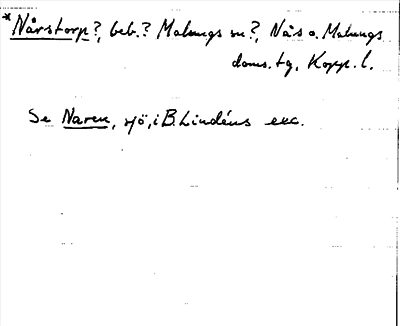 *Nårstorp?, beb.? Malungs sn?, Nås o. Malungs
doms. tg, Kopp. l.
Se Naren, sjö, i B. Lindéns exc.